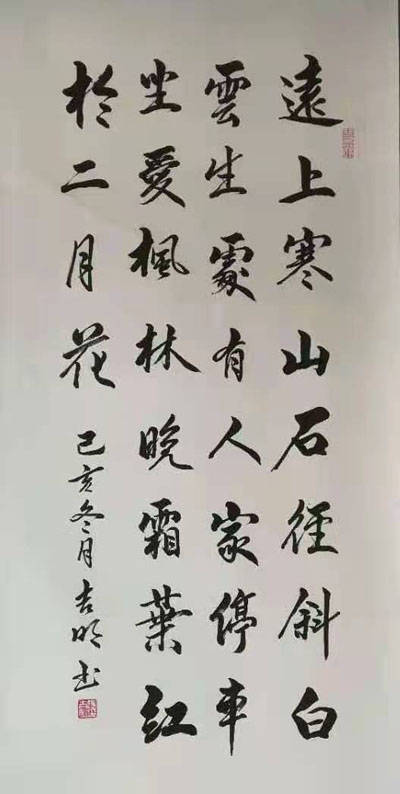 遠上寒山石徑斜白
雲生處有人家停車
坐愛楓林晚霜葉紅
於二月花
己亥冬月吉明书